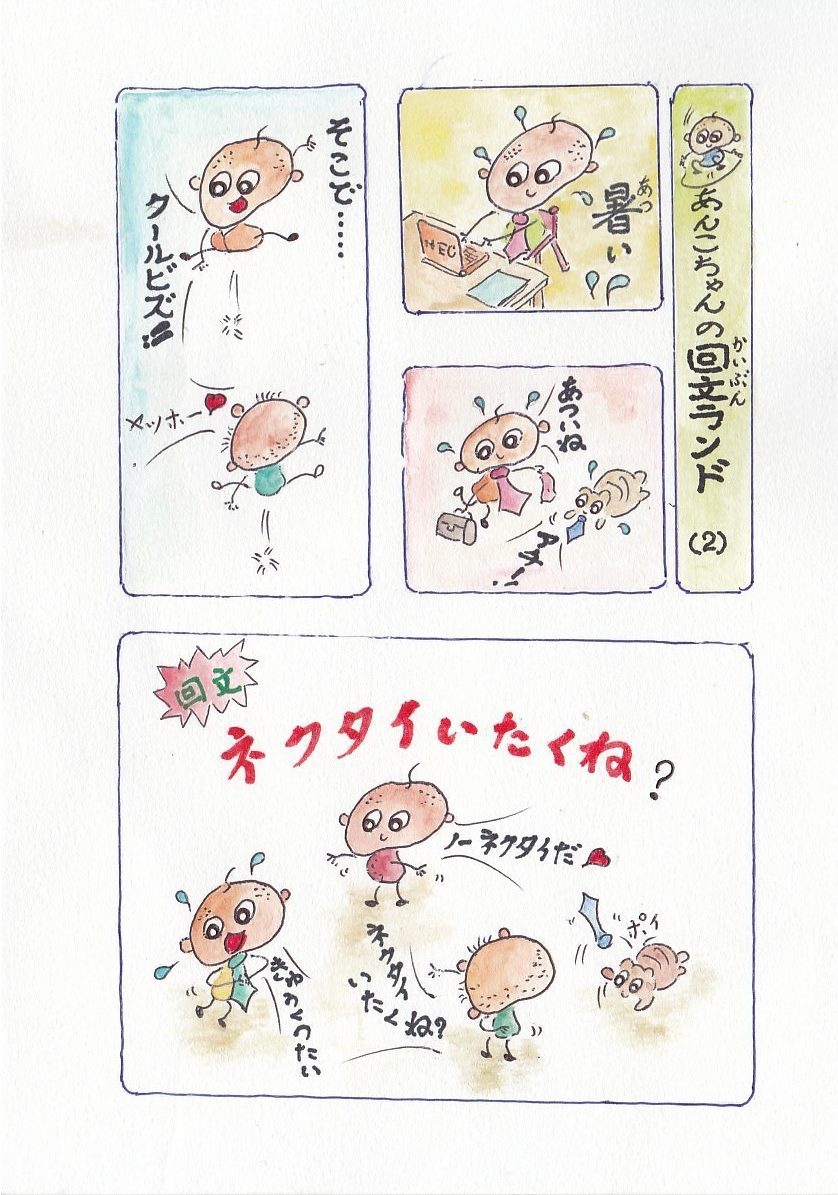 あんこちゃんの回文ランド
かいぶん
(2)
暑い
あつ
NEC
あついね
アチー!
そこで……
クールビズ!!
メッホー
回文
ネクタイいたくね?
ノーネクタイだ
ポイ
ネクタイ
いたくね?
きゅうくつたい